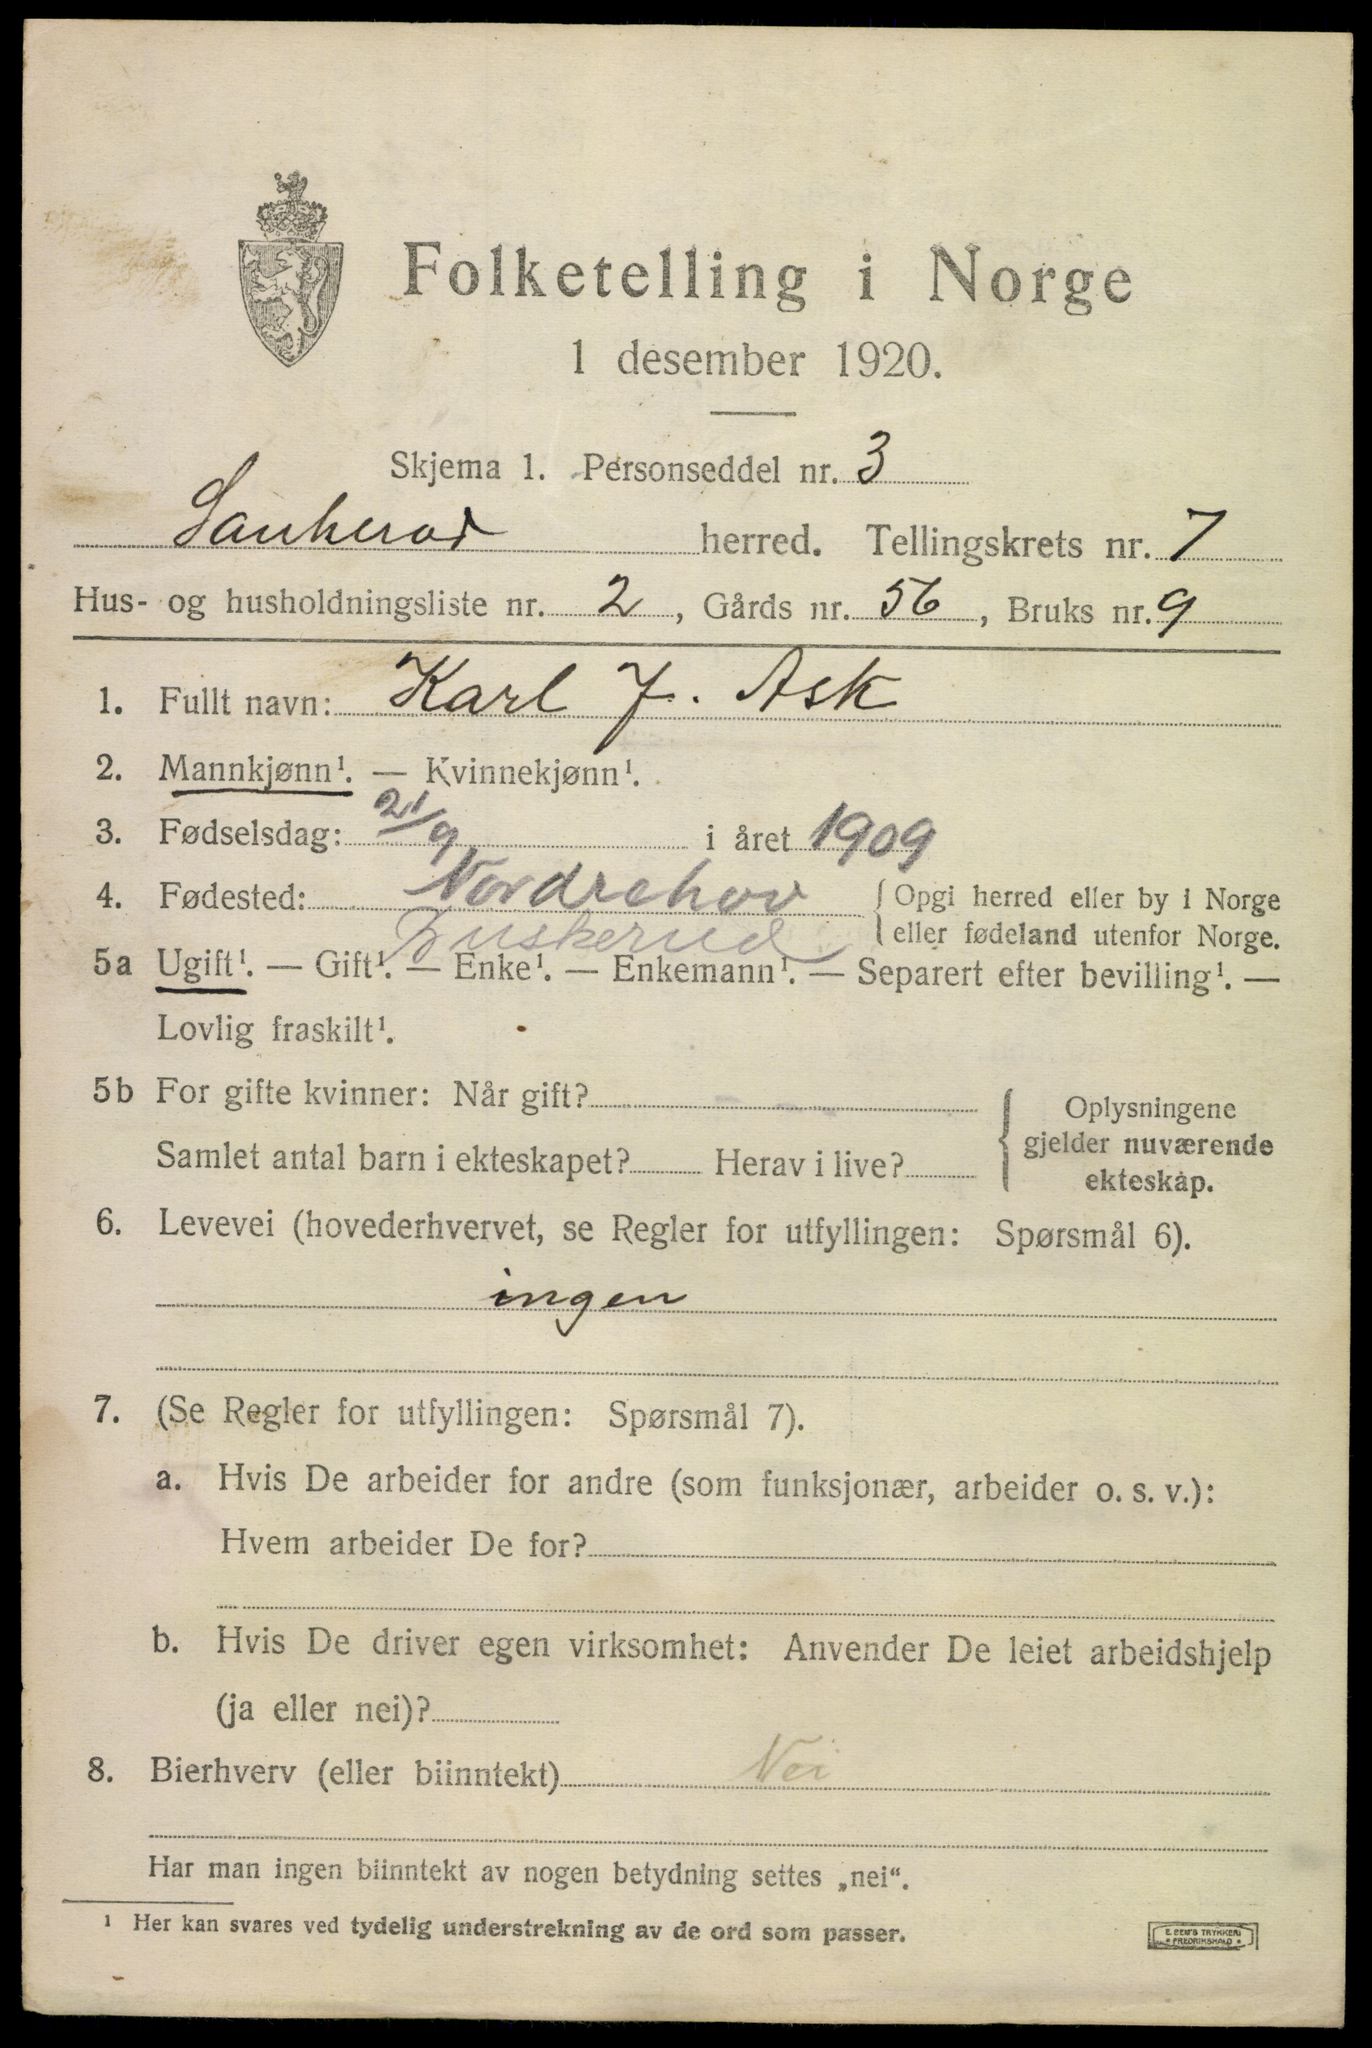 Folketelling i Norge
1 desember 1920.
Skjema 1. Personseddel nr. 3
Sauherad herred. Tellingskrets nr. 7
Hus- og husholdningsliste nr. 2, Gårds nr. 56, Bruks nr. 9
1. Fullt navn: Karl J. Ask
2. Mannkjønn¹. — Kvinnekjønn¹.
3. Fødselsdag: 21/9 i året 1909
4. Fødested: Nordrehov { Opgi herred eller by i Norge
Buskerud eller fødeland utenfor Norge.
5a Ugift¹. — Gift¹. — Enke¹. — Enkemann¹. — Separert efter bevilling¹. —
Lovlig fraskilt¹.
5b For gifte kvinner: Når gift?
Samlet antal barn i ekteskapet? Herav i live?
{ Oplysningene
gjelder nuværende
ekteskap.
6. Levevei (hovederhvervet, se Regler for utfyllingen: Spørsmål 6).
ingen
7. (Se Regler for utfyllingen: Spørsmål 7).
a. Hvis De arbeider for andre (som funksjonær, arbeider o. s. v.):
Hvem arbeider De for?
b. Hvis De driver egen virksomhet: Anvender De leiet arbeidshjelp
(ja eller nei)?
8. Bierhverv (eller biinntekt) Nei
Har man ingen biinntekt av nogen betydning settes „nei“.
¹ Her kan svares ved tydelig understrekning av de ord som passer.
E. SEM'S TRYKKERI
• FREDRIKSHALD •